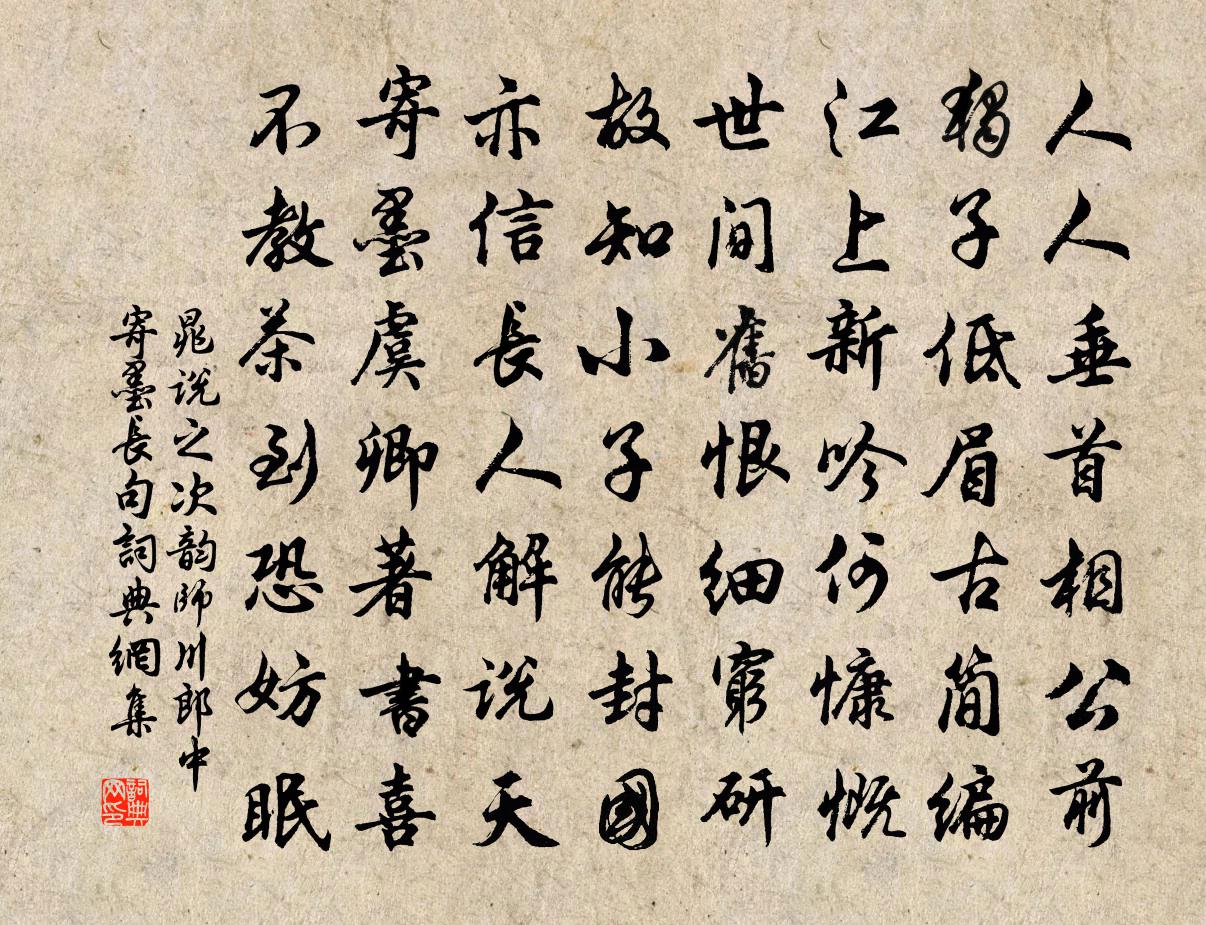 人人垂首相公前
獨子低眉古简编
江上新吟何慷慨
世间舊恨细窮研
故知小子能封國
亦信長人解说天
寄墨虞卿著書喜
不教茶到恐妨眠
晁说之次韵師川郎中
寄墨長句詞典網集
詞典
网印